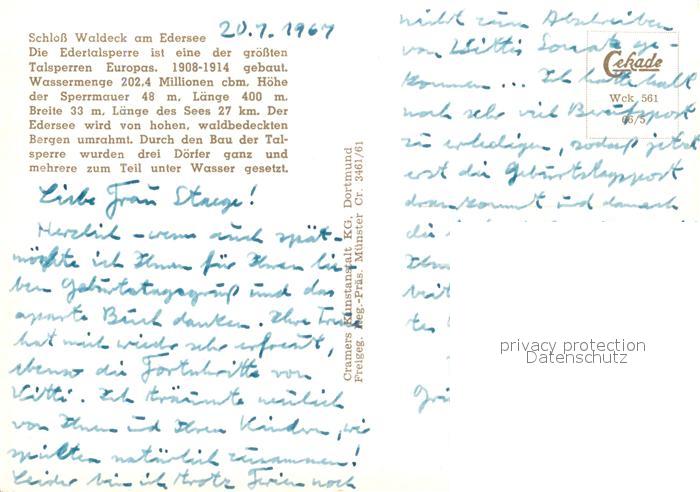 20.7.1967
Schloß Waldeck am Edersee
Die Edertalsperre ist eine der größten
Talsperren Europas. 1908-1914 gebaut.
Wassermenge 202,4 Millionen cbm, Höhe
der Sperrmauer 48 m, Länge 400 m.
Breite 33 m, Länge des Sees 27 km. Der
Edersee wird von hohen, waldbedeckten
Bergen umrahmt. Durch den Bau der Tal-
sperre wurden drei Dörfer ganz und
mehrere zum Teil unter Wasser gesetzt.
Liebe Frau Staege!
Herzlich – wenn auch spät –
möchte ich Ihnen für Ihren lie-
ben Geburtstagsgruß und das
aparte Buch danken. Ihre
hat mich wieder sehr erfreut,
ebenso die Fortschritte von
Kitti. Ich träumte neulich
von Ihnen und Ihren Kindern, wir
spielten natürlich zusammen!
Leider bin ich trotz Ferien noch
Cramers Kunstanstalt KG, Dortmund
Freigeg. Reg.-Präs. Münster Cr. 3461/61
nicht zum Abschreiben
von Kittis Sonate ge-
kommen ... Ich hatte halt
noch sehr viel Berufspost
zu erledigen, sodaß jetzt
erst die Geburtstagspost
drankommt und danach
die
Ihn
beit
tes
Grü
Cekade
Wck 561
66/5
privacy protection
Datenschutz